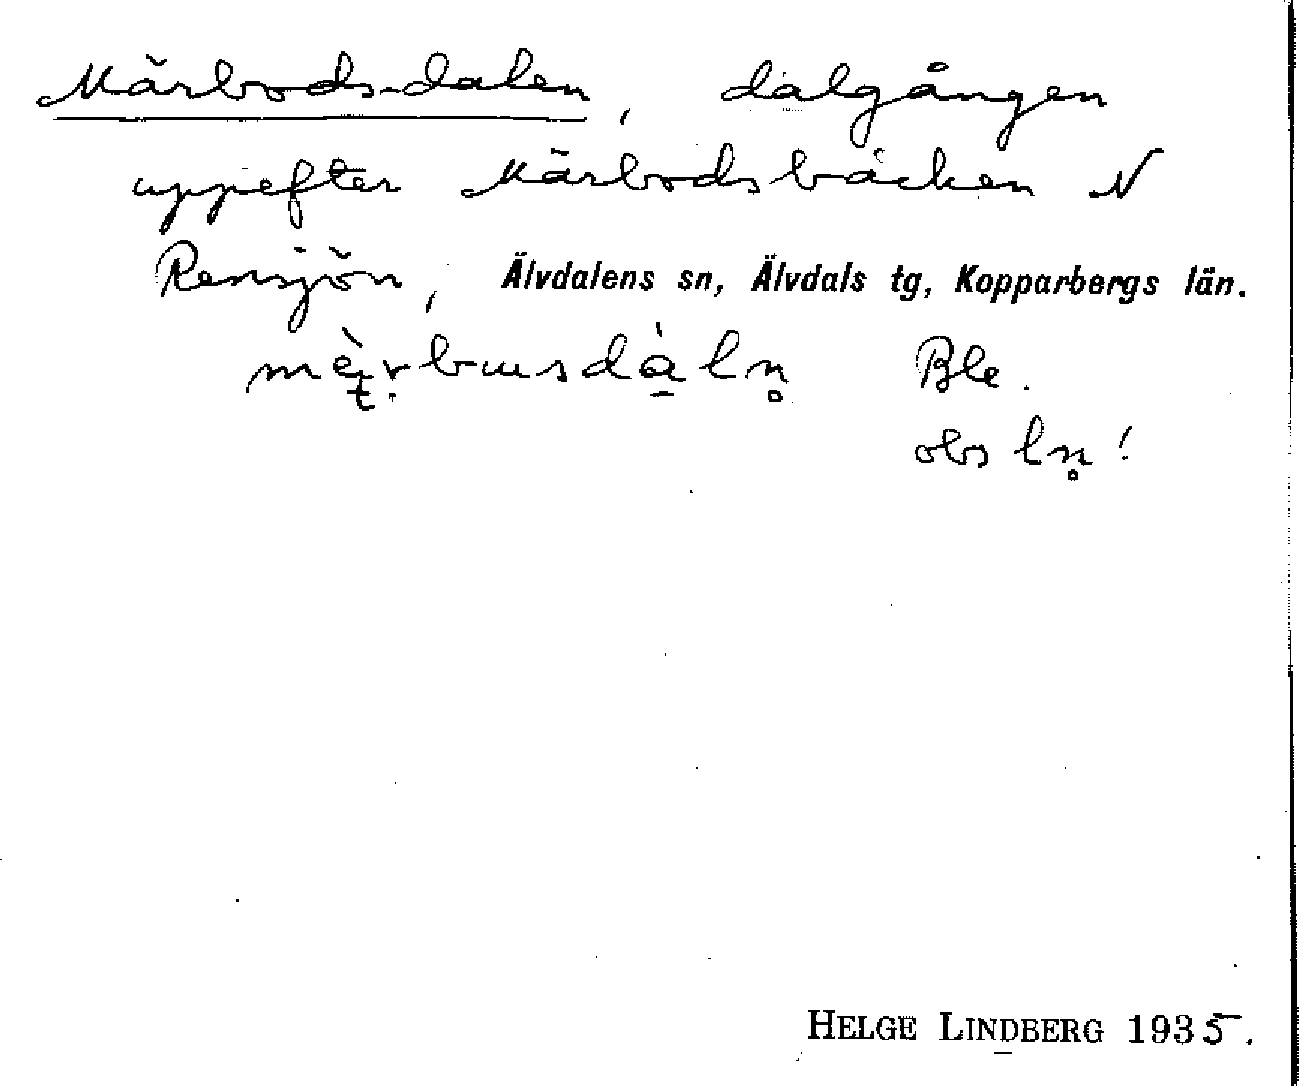 Märbods-dalen, dalgången
uppefter Märbodsbäcken N
Rensjön, Älvdalens sn, Älvdals tg, Kopparbergs län.
Ble.
obs ln̥!
HELGE LINDBERG 1935.